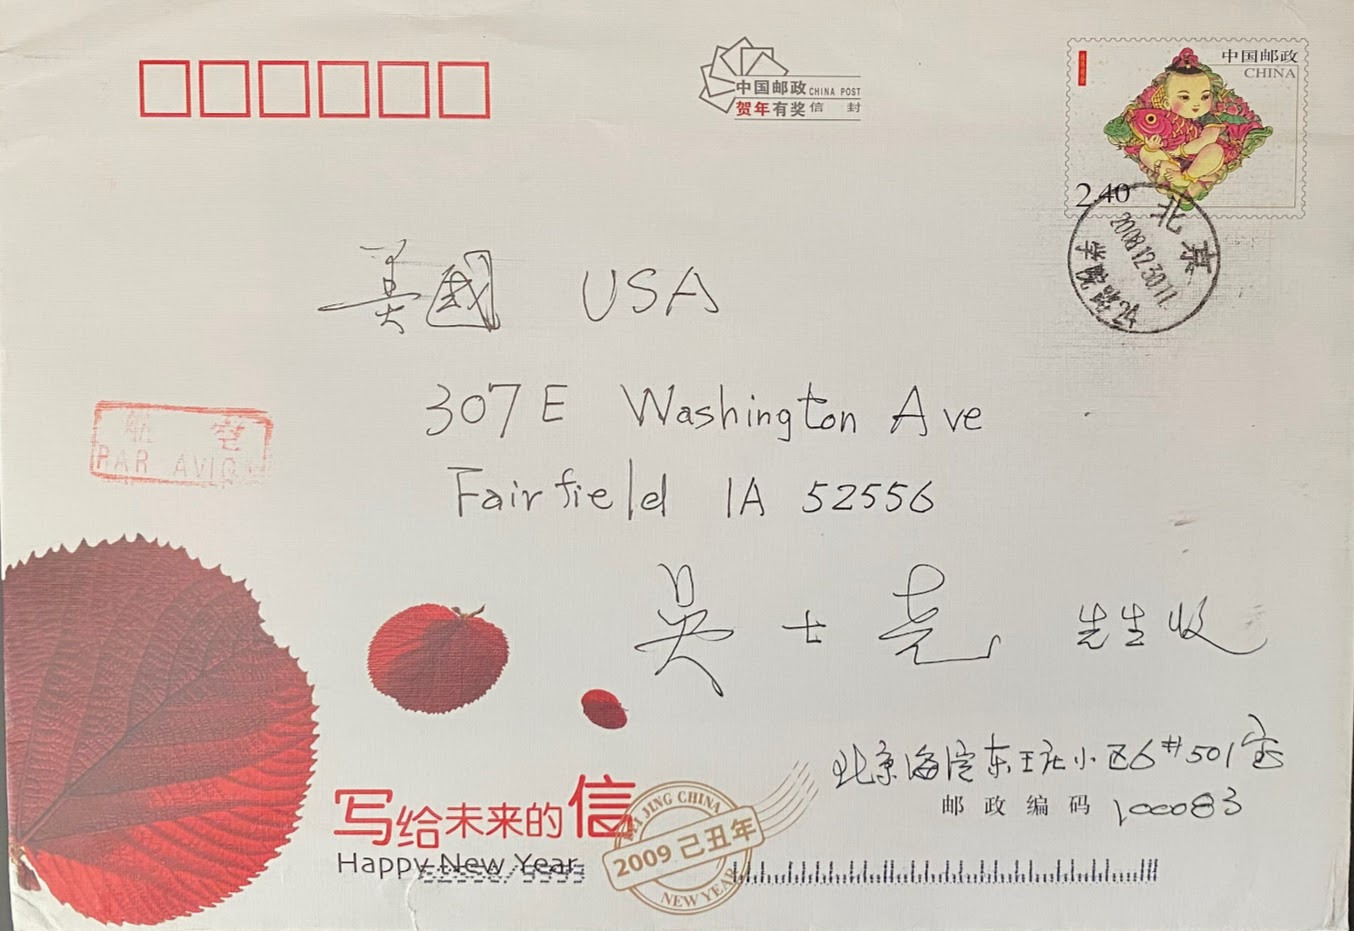 中国邮政 CHINA POST
贺年有奖信封
中国邮政
CHINA
2.40
北京
2008.12.30.11
美國 USA
307 E Washington Ave
Fairfield IA 52556
PAR AVION
吴士尧 先生收
北京海淀东王庄小区6#501室
邮政编码 100083
写给未来的信
Happy New Year
BEIJING CHINA
2009 己丑年
NEW YEAR